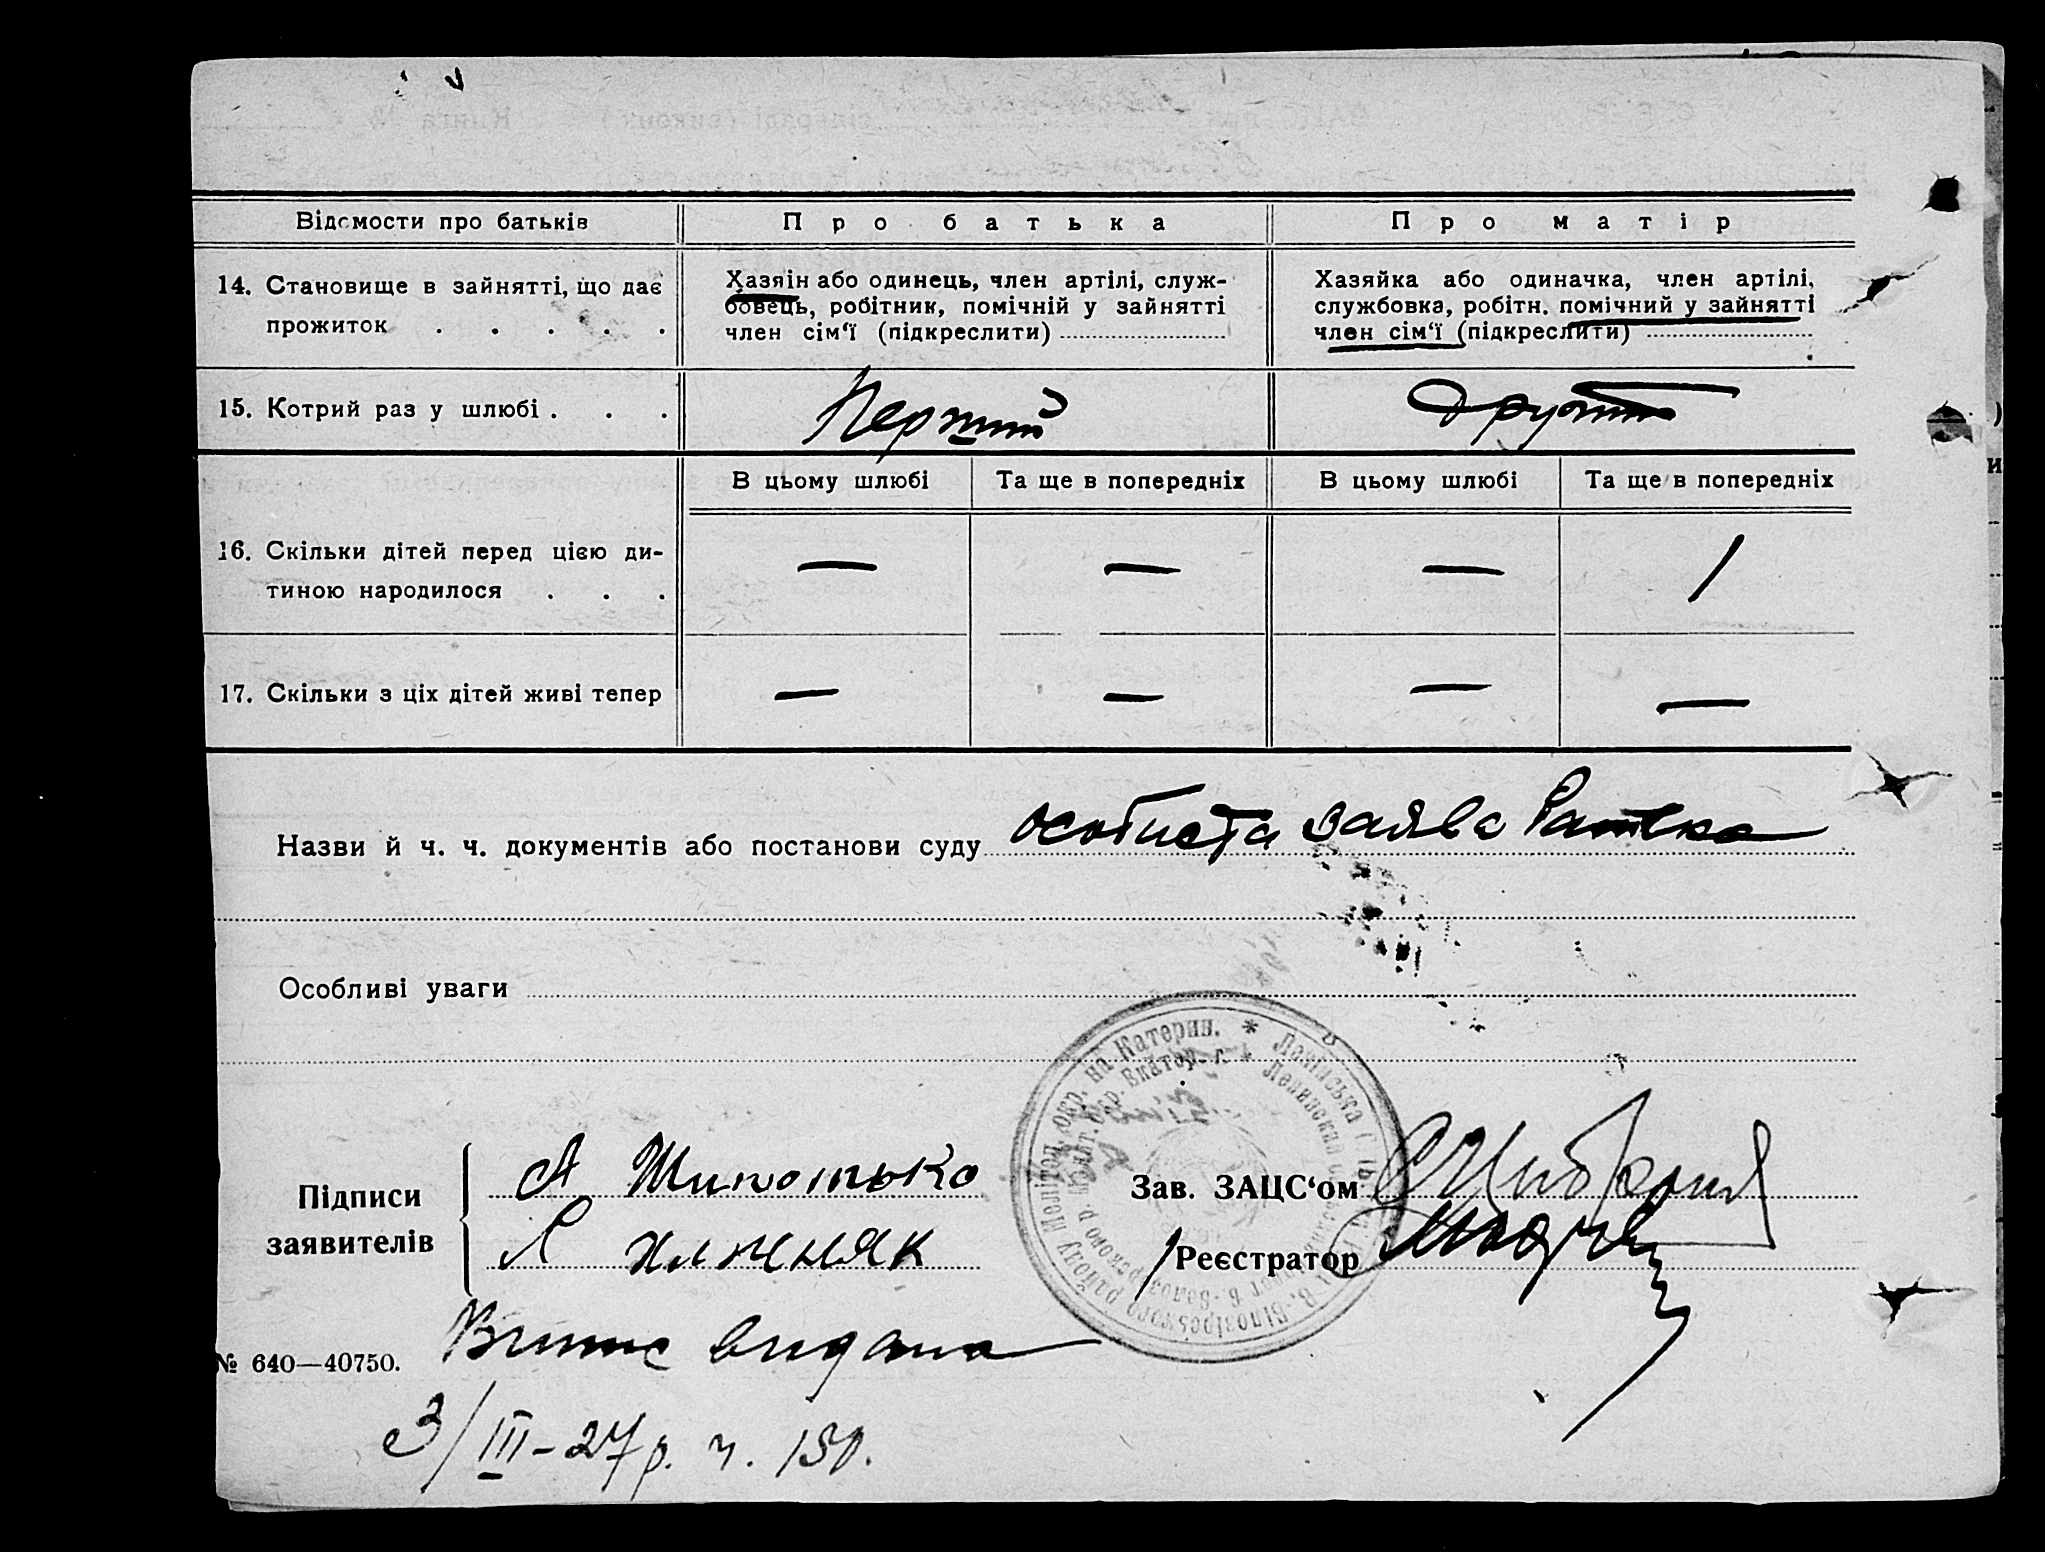 Відомости про батьків
Про батька
Про матір
14. Становище в зайнятті, що дає
прожиток . . . . .
Хазяін або одинець, член артілі, служ-
бовець, робітник, помічній у зайнятті
член сім‘ї (підкреслити)
Хазяйка або одиначка, член артілі,
службовка, робітн. помічний у зайнятті
член сім‘ї (підкреслити)
15. Котрий раз у шлюбі . . .
Перший
Другий
В цьому шлюбі
Та ще в попередніх
В цьому шлюбі
Та ще в попередніх
16. Скільки дітей перед цією ди-
тиною народилося . . .
— — — 1
17. Скільки з ціх дітей живі тепер
— — — —
Назви й ч. ч. документів або постанови суду особиста заява Батька
Особливі уваги
Підписи
заявителів
А Шипотько
Хижняк
Зав. ЗАЦС‘ом
Реєстратор
№ 640—40750.
Випис видана
3/III-27 р. ч. 150.